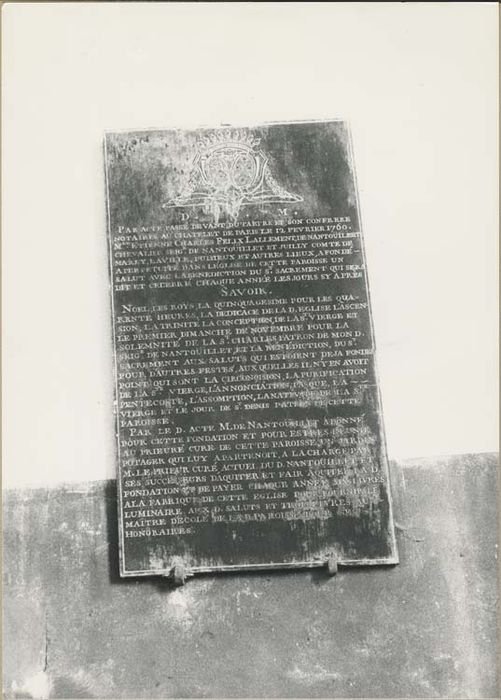 D. M
PAR ACTE PASSÉ DEVANT DUTARTRE ET SON CONFRERE
NOTAIRES AU CHATELET DE PARIS LE 12 FEVRIER 1760.
ETIENNE CHARLES FELIX LALLEMENT, DE NANTOUILLET
CHEVALIER SEIG.R DE NANTOUILLET ET JUILLY COMTE DE
MARLY, LAVILLE, PUISIEUX ET AUTRES LIEUX, A FONDÉ
A PERPETUITÉ DANS L'EGLISE DE CETTE PAROISSE UN
SALUT AVEC LA BENEDICTION DU S. SACREMENT QUI SERA
DIT ET CELEBRÉ CHAQUE ANNÉE LES JOURS CY APRÉS
SAVOIR.
NOEL, LES ROYS, LA QUINQUAGESIME POUR LES QUA-
RENTE HEURES, LA DEDICACE DE LA D. EGLISE L'ASCEN-
SION, LA TRINITÉ LA CONCEPTION DE LA S.TE VIERGE ET
LE PREMIER DIMANCHE DE NOVEMBRE POUR LA
SOLEMNITÉ DE LA S.T CHARLES PATRON DE MON D.
SEIG.R DE NANTOUILLET ET LA BENEDICTION, DU S.T
SACREMENT AUX SALUTS QUI ESTOIENT DEJA FONDÉS
POUR D'AUTRES FESTES, AUX QUELLES IL N'Y EN AVOIT
POINT QUI SONT LA CIRCONCISION, LA PURIFICATION
DE LA S.TE VIERGE, L'ANNONCIATION, PAQUE, LA
PENTECOSTE, L'ASSOMPTION, LA NATIVITÉ DE LA S.TE
VIERGE ET LE JOUR DE S.T DENIS PATRON DE CETTE
PAROISSE.
PAR LE D. ACTE M. DE NANTOUILLET A DONNÉ
POUR CETTE FONDATION ET POUR ESTRE
AU PRIEURÉ CURE DE CETTE PAROISSE, UN JARDIN
POTAGER QUI LUY APARTENOIT, A LA CHARGE PAR
M. LE PRIEUR CURÉ ACTUEL DU D. NANTOUILLET ET
SES SUCCESSEURS D'AQUITER ET FAIR AQUITER LA D.
FONDATION ET DE PAYER CHAQUE ANNÉE LIVRES
A LA FABRIQUE DE CETTE EGLISE POUR FOURNIR LE
LUMINAIRE AUX D. SALUTS ET TROIS LIVRES AU
MAITRE D'ECOLE DE LA D. PAROISSE POUR SES
HONORAIRES.